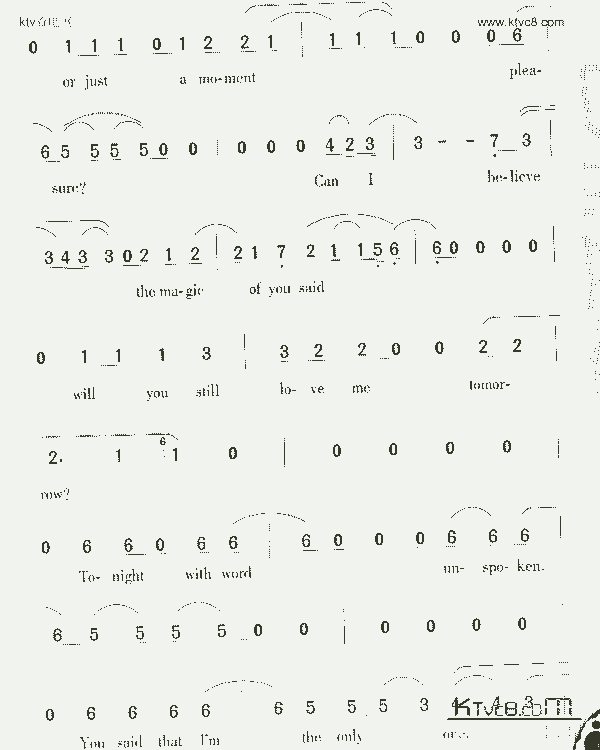 www.ktvc8.com
0 1 1 1 0 1 2 2 1 | 1 1 1 0 0 0 6
or just a mo-ment plea-
6 5 5 5 5 0 0 | 0 0 0 4 2 3 | 3 - - 7 3
sure? Can I be-lieve
3 4 3 3 0 2 1 2 | 2 1 7 2 1 1 5 6 | 6 0 0 0 0
the ma-gic of you said
0 1 1 1 3 | 3 2 2 0 0 2 2
will you still lo- ve me tomor-
2. 1 6 1 0 | 0 0 0 0
row?
0 6 6 0 6 6 | 6 0 0 0 6 6 6
To- night with word un- spo- ken.
6 5 5 5 5 0 0 | 0 0 0 0
0 6 6 6 6 6 5 5 5 3 4 4 3
You said that I'm the only one.
KTvc8.com